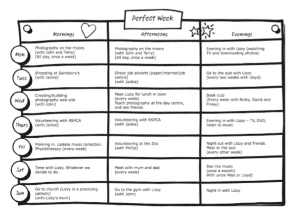 Perfect Week
Mornings
Afternoons
Evenings
Mon
Photography on the moors
(with John and Terry)
(All day, once a week)
Photography on the moors
(with John and Terry)
(All day, once a week)
Evening in with Lizzy (watching
TV and downloading photos)
Tues
Shopping at Sainsbury's
(with Jackie)
Check job adverts (paper/internet/job
centre)
(with Jackie)
Go to the pub with Lizzy
(every two weeks with Lloyd)
Wed
Creating/building
photography web site
(with John)
Meet Lizzy for lunch in town
(every week)
Teach photography at the day centre,
and see friends
Book club
(Every week with Ricky, David and
Finlay)
Thurs
Volunteering with RSPCA
(with Jackie)
Volunteering with RSPCA
(with Jackie)
Evening in with Lizzy – TV, DVD,
listen to music
Fri
Morning in. Update music collection.
Physiotherapy (every week)
Volunteering at the Zoo
(with Philip)
Night out with Lizzy and friends.
Meal at the pub
(every other week)
Sat
Time with Lizzy. Whatever we
decide to do.
Meet with mum and dad
(every week)
See live music
(once a month)
With uncle Pete or Lloyd)
Sun
Go to church (Lizzy is a practising
catholic)
(with Lizzy's mum)
Go to the gym with Lizzy
(with John)
Night in with Lizzy